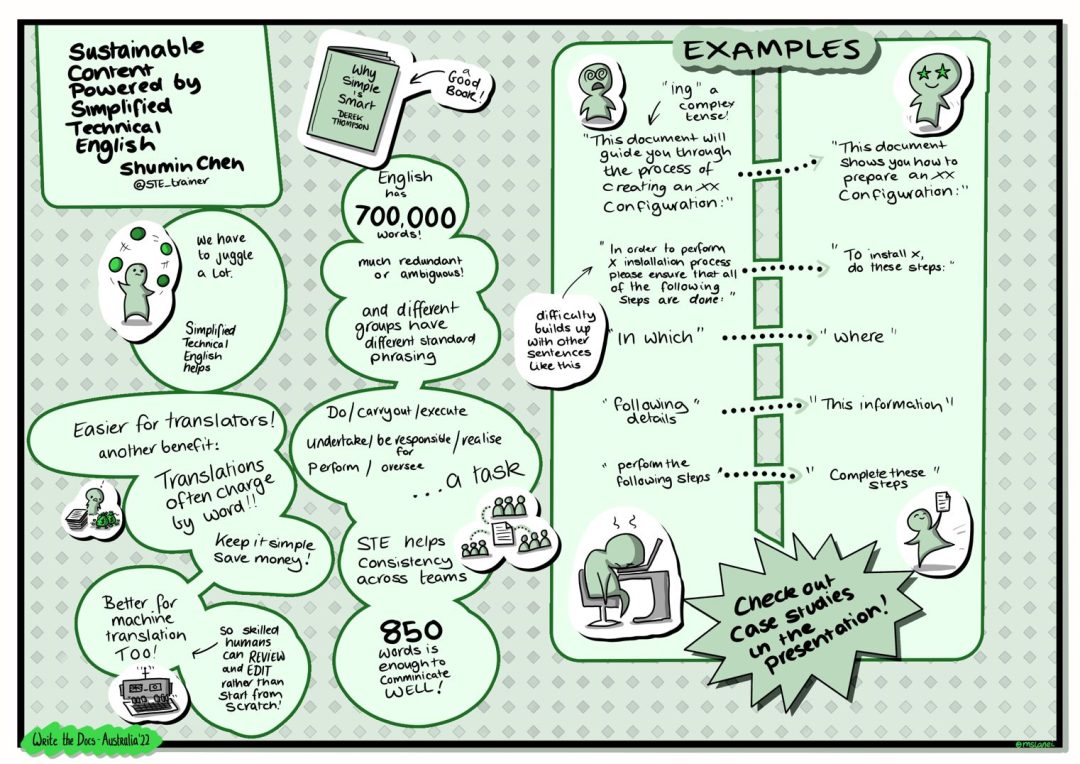 Sustainable
Content
Powered by
Simplified
Technical
English
Shumin Chen
@STE_trainer
Why
Simple
is
Smart
DEREK
THOMPSON
a
Good
Book!
We have
to juggle
a lot.
Simplified
Technical
English
helps
English
has
700,000
words!
much redundant
or ambiguous!
and different
groups have
different standard
phrasing
Do/carryout/execute
undertake/be responsible/realise
for
perform / oversee
...a task
STE helps
Consistency
across teams
850
words is
enough to
comminicate
WELL!
Easier for translators!
another benefit:
Translations
often charge
by word!!
Keep it simple
save money!
Better for
machine
translation
TOO!
So skilled
humans
can REVIEW
and EDIT
rather than
start from
scratch!
EXAMPLES
"ing" a
complex
tense!
"This document will
guide you through
the process of
creating an XX
configuration:"
"This document
shows you how to
prepare an XX
Configuration:"
"In order to perform
X installation process
please ensure that all
of the following
steps are done:"
"To install X,
do these steps:"
difficulty
builds up
with other
sentences
like this
"In which"
"where"
"following"
details
"This information"
"perform the
following steps"
"Complete these"
steps
Check out
case studies
in the
presentation!
Write the Docs - Australia '22
@mslanei